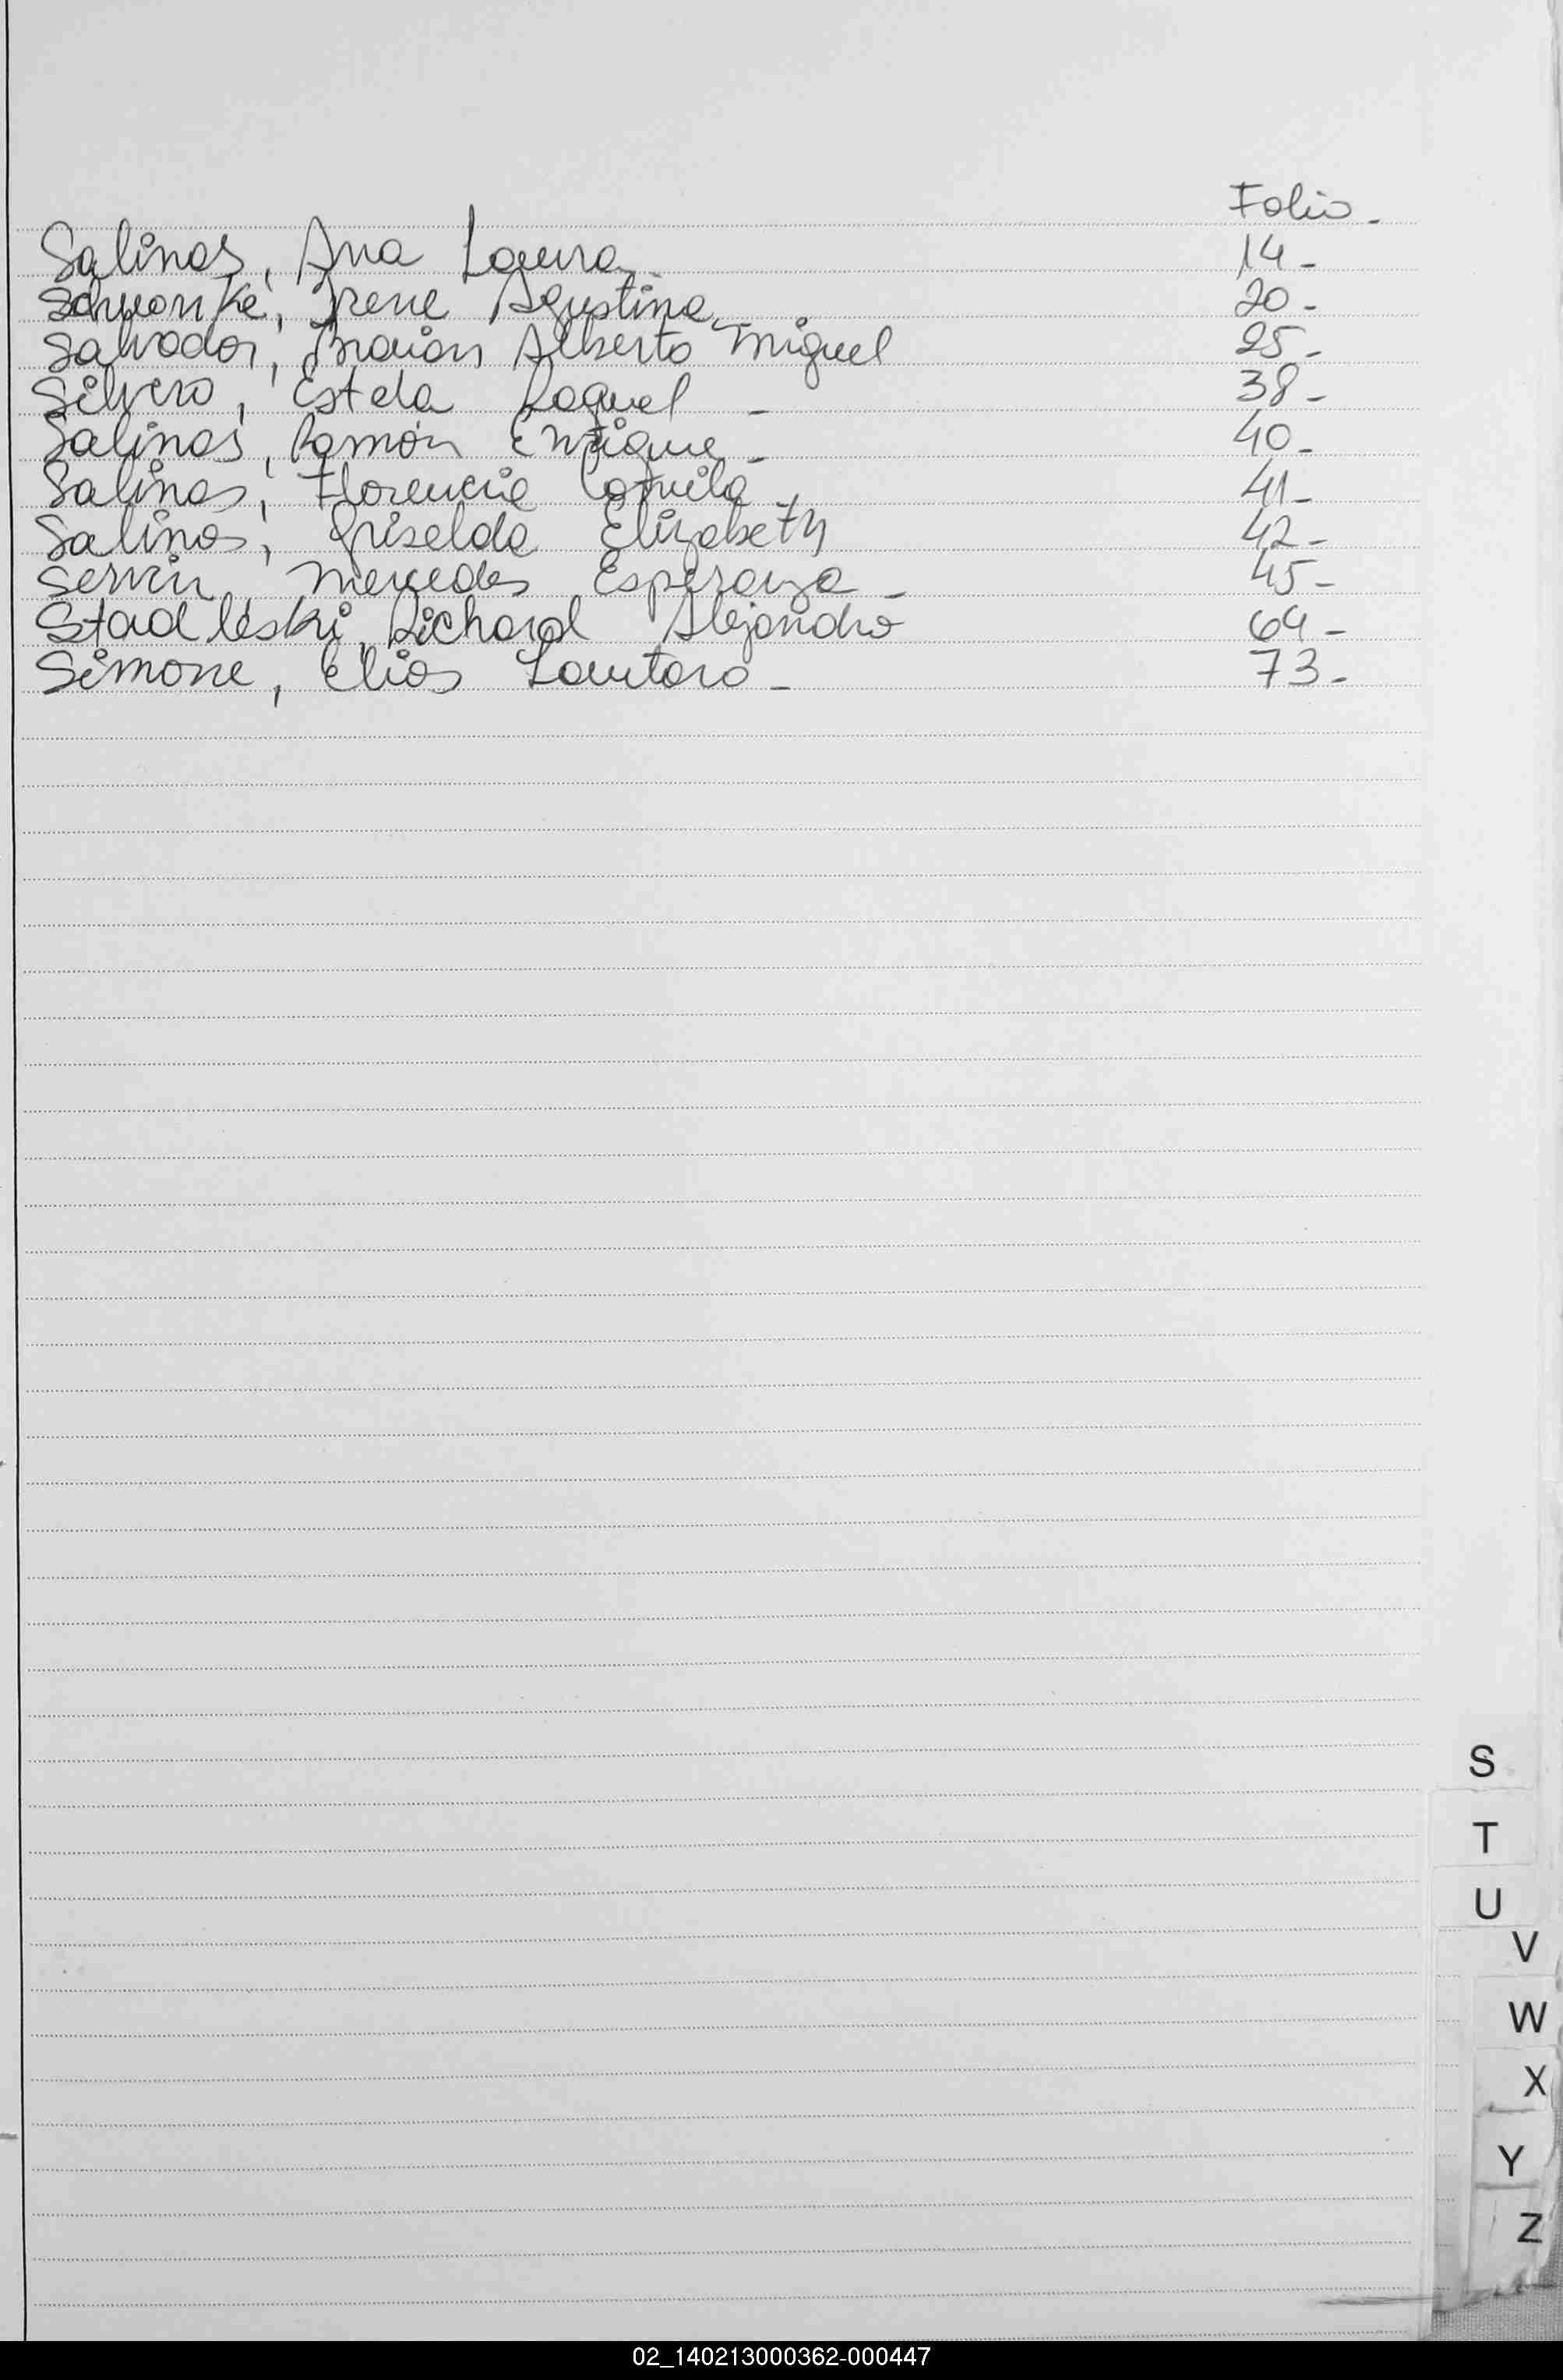 Folio -
Salinas, Ana Laura - 14 -
Schwonke, Irene Agustina - 20 -
Salvador, Braian Alberto Miguel 25 -
Silvero, Estela Raquel - 38 -
Salinas, Ramón Enrique - 40 -
Salinas, Florencia Camila - 41 -
Salinas, Griselda Elizabeth 42 -
Servin, Mercedes Esperanza - 45 -
Stadleski, Richard Alejandro 64 -
Simone, Elias Lautaro - 73 -
S
T
U
V
W
X
Y
Z
02_140213000362-000447